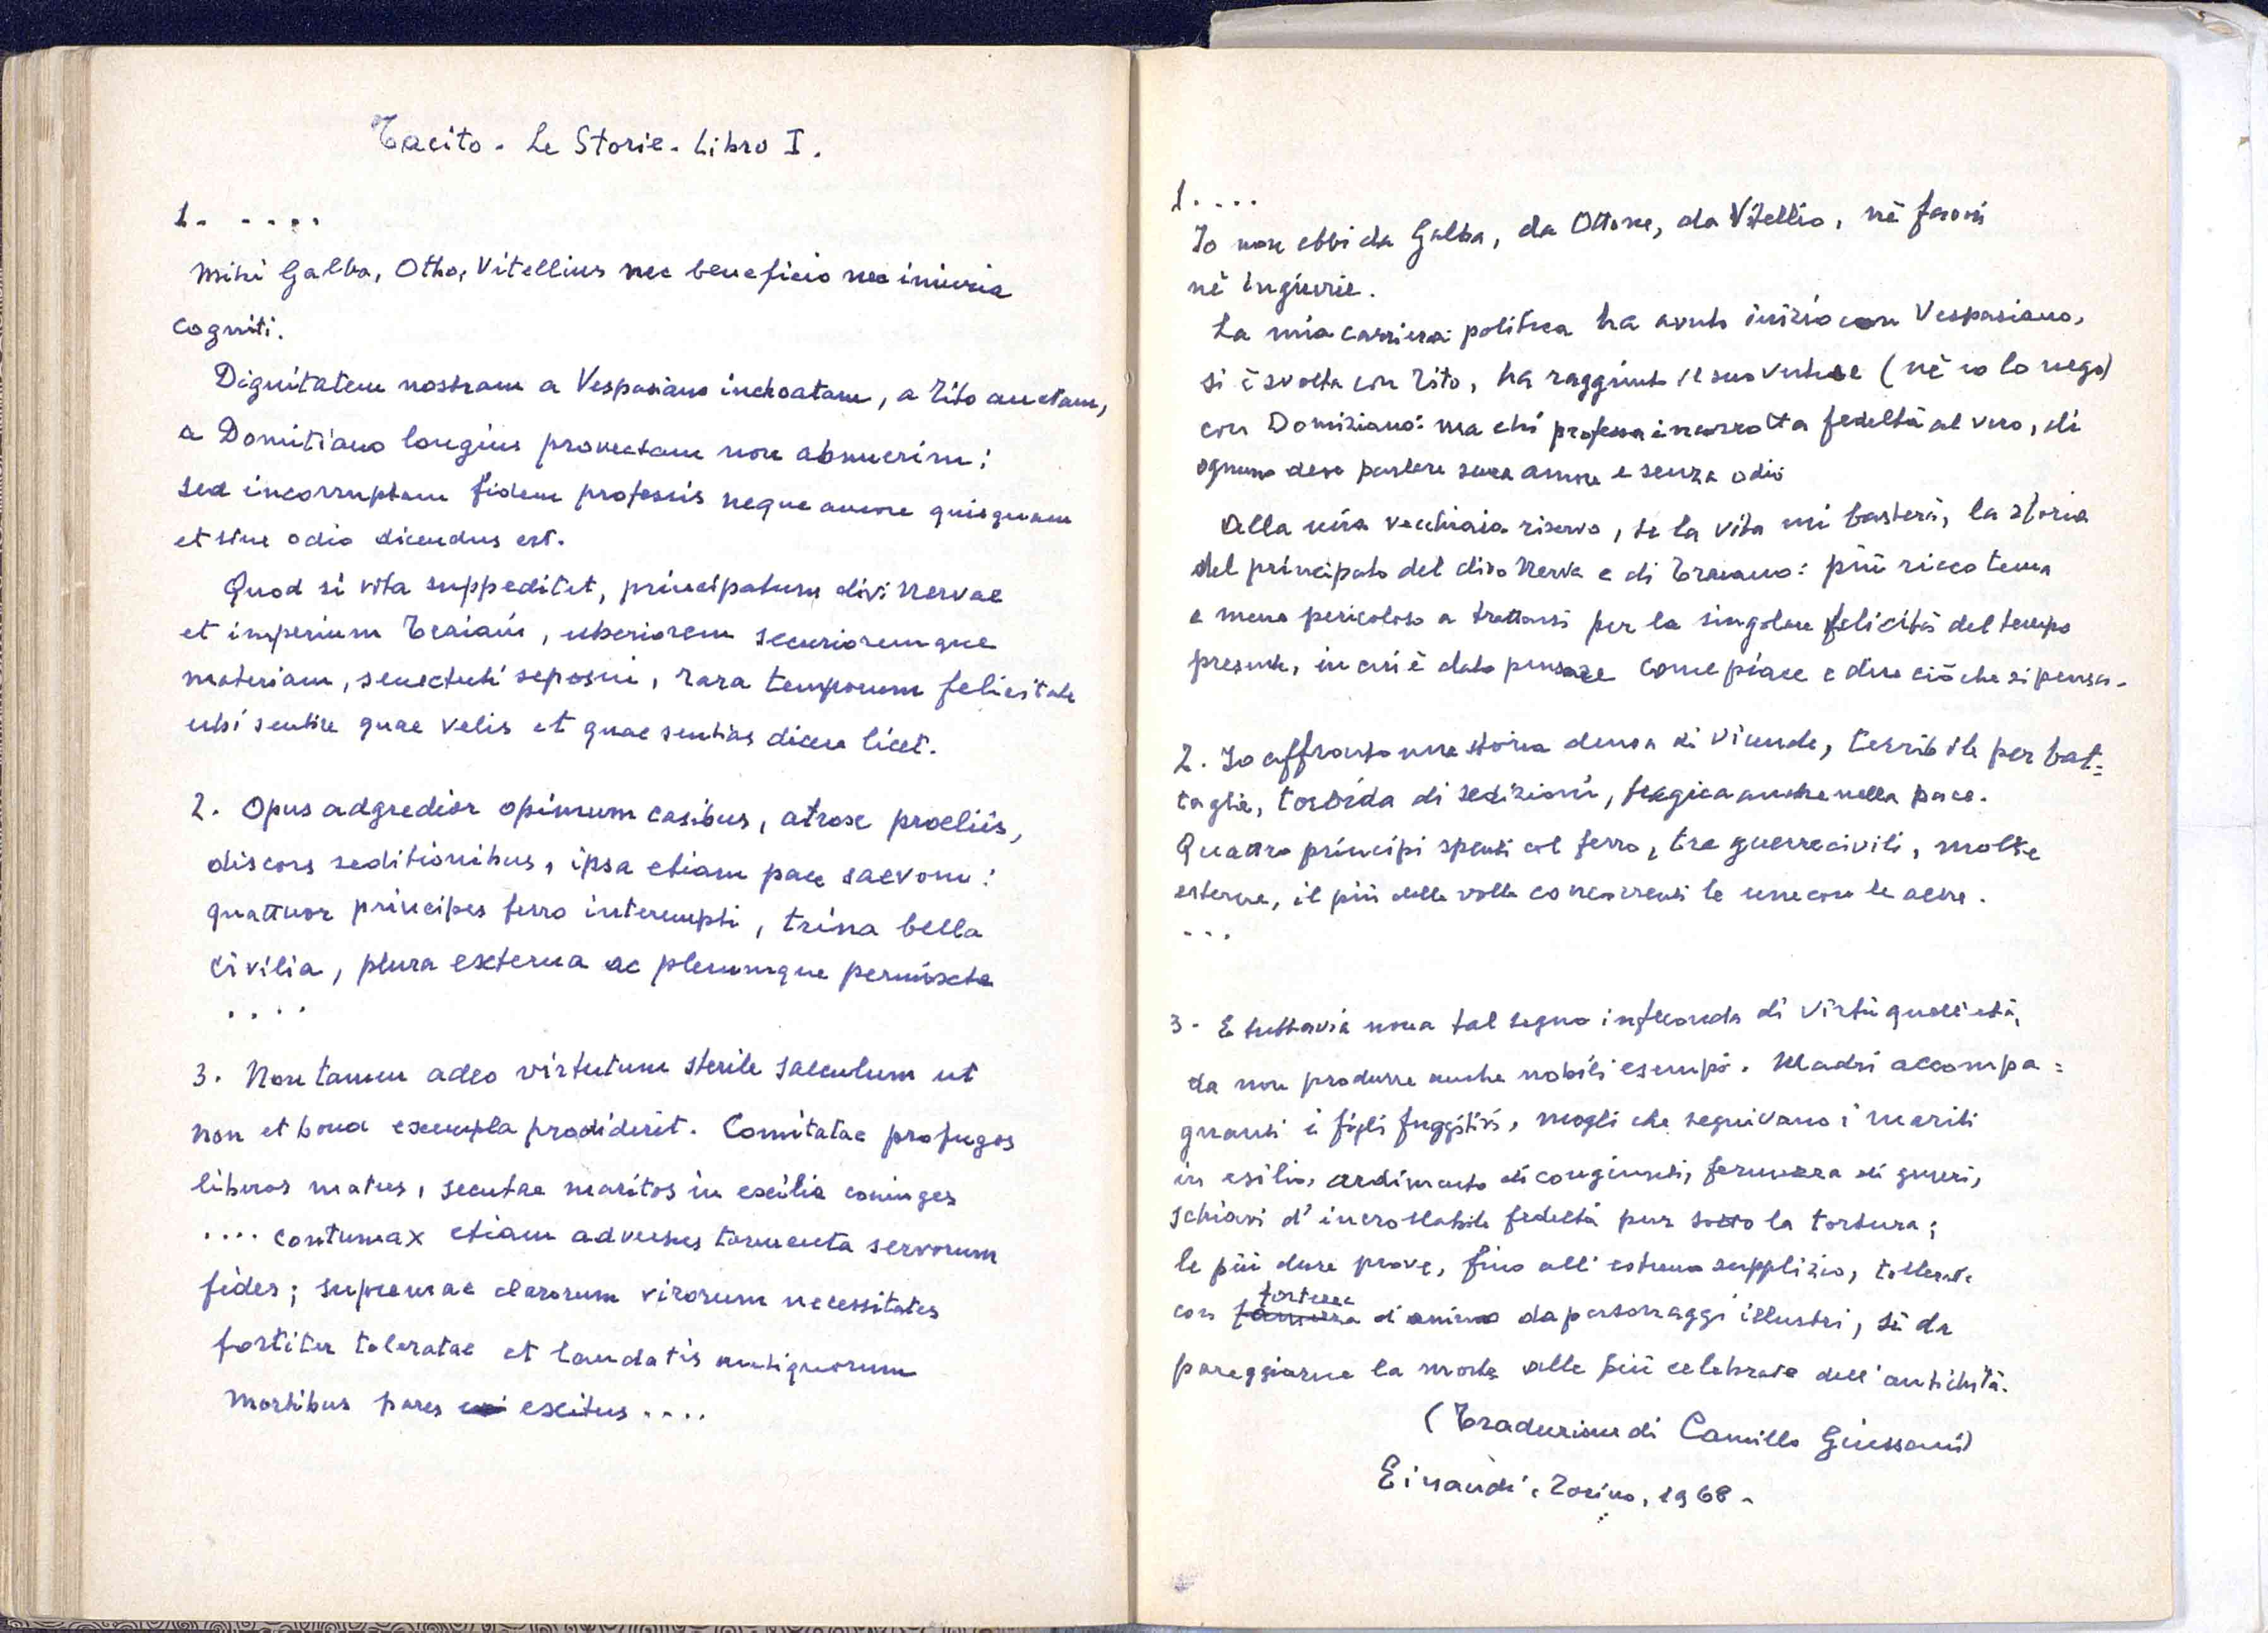 Tacito - Le Storie - Libro I.
1. - - - - .
Mihi Galba, Otho, Vitellius nec beneficio nec iniuria
cogniti.
Dignitatem nostram a Vespasiano inchoatam, a Tito auctam,
a Domitiano longius provectam non abnuerim:
sed incorruptam fidem professis neque amore quisquam
et sine odio dicendus est.
Quod si vita suppeditet, principatum divi Nervae
et imperium Traiani, uberiorem securioremque
materiam, senectuti seposui, rara temporum felicitate
ubi sentire quae velis et quae sentias dicere licet.
2. Opus adgredior opimum casibus, atrox proeliis,
discors seditionibus, ipsa etiam pace saevom:
quattuor principes ferro interempti, trina bella
civilia, plura externa ac plerumque permixta
. . . .
3. Non tamen adeo virtutum sterile saeculum ut
non et bona exempla prodiderit. Comitatae profugos
liberos matres, secutae maritos in exilia coniuges
.... contumax etiam adversus tormenta servorum
fides; supremae clarorum virorum necessitates
fortiter toleratae et laudatis antiquorum
mortibus pares exitus ....
1. . . .
Io non ebbi da Galba, da Ottone, da Vitellio, nè favori
nè ingiurie.
La mia carriera politica ha avuto inizio con Vespasiano,
si è svolta con Tito, ha raggiunto il suo vertice (nè io lo nego)
con Domiziano: ma chi professa incorrotta fedeltà al vero, di
ognuno deve parlare senza amore e senza odio
Alla mia vecchiaia riservo, se la vita mi basterà, la storia
del principato del divo Nerva e di Traiano: più ricco tema
e meno pericoloso a trattarsi per la singolare felicità del tempo
presente, in cui è dato pensare come piace e dire ciò che si pensa.
2. Io affronto una storia densa di vicende, terribile per bat=
taglie, torbida di sedizioni, tragica anche nella pace.
Quattro principi spenti col ferro, tre guerre civili, molte
esterne, il più delle volte concorrenti le une con le altre.
- - .
3. E tuttavia non a tal segno infeconda di virtù quell'età,
da non produrre anche nobili esempi. Madri accompa=
gnanti i figli fuggitivi, mogli che seguivano i mariti
in esilio, ardimento di congiunti, fermezza di generi,
schiavi d'incrollabile fedeltà pur sotto la tortura;
le più dure prove, fino all'estremo supplizio, tollerate
con fortezza d'animo da personaggi illustri, sì da
pareggiarne la morte alle più celebrate dell'antichità.
(Traduzione di Camillo Giussani)
Einaudi, Torino, 1968.